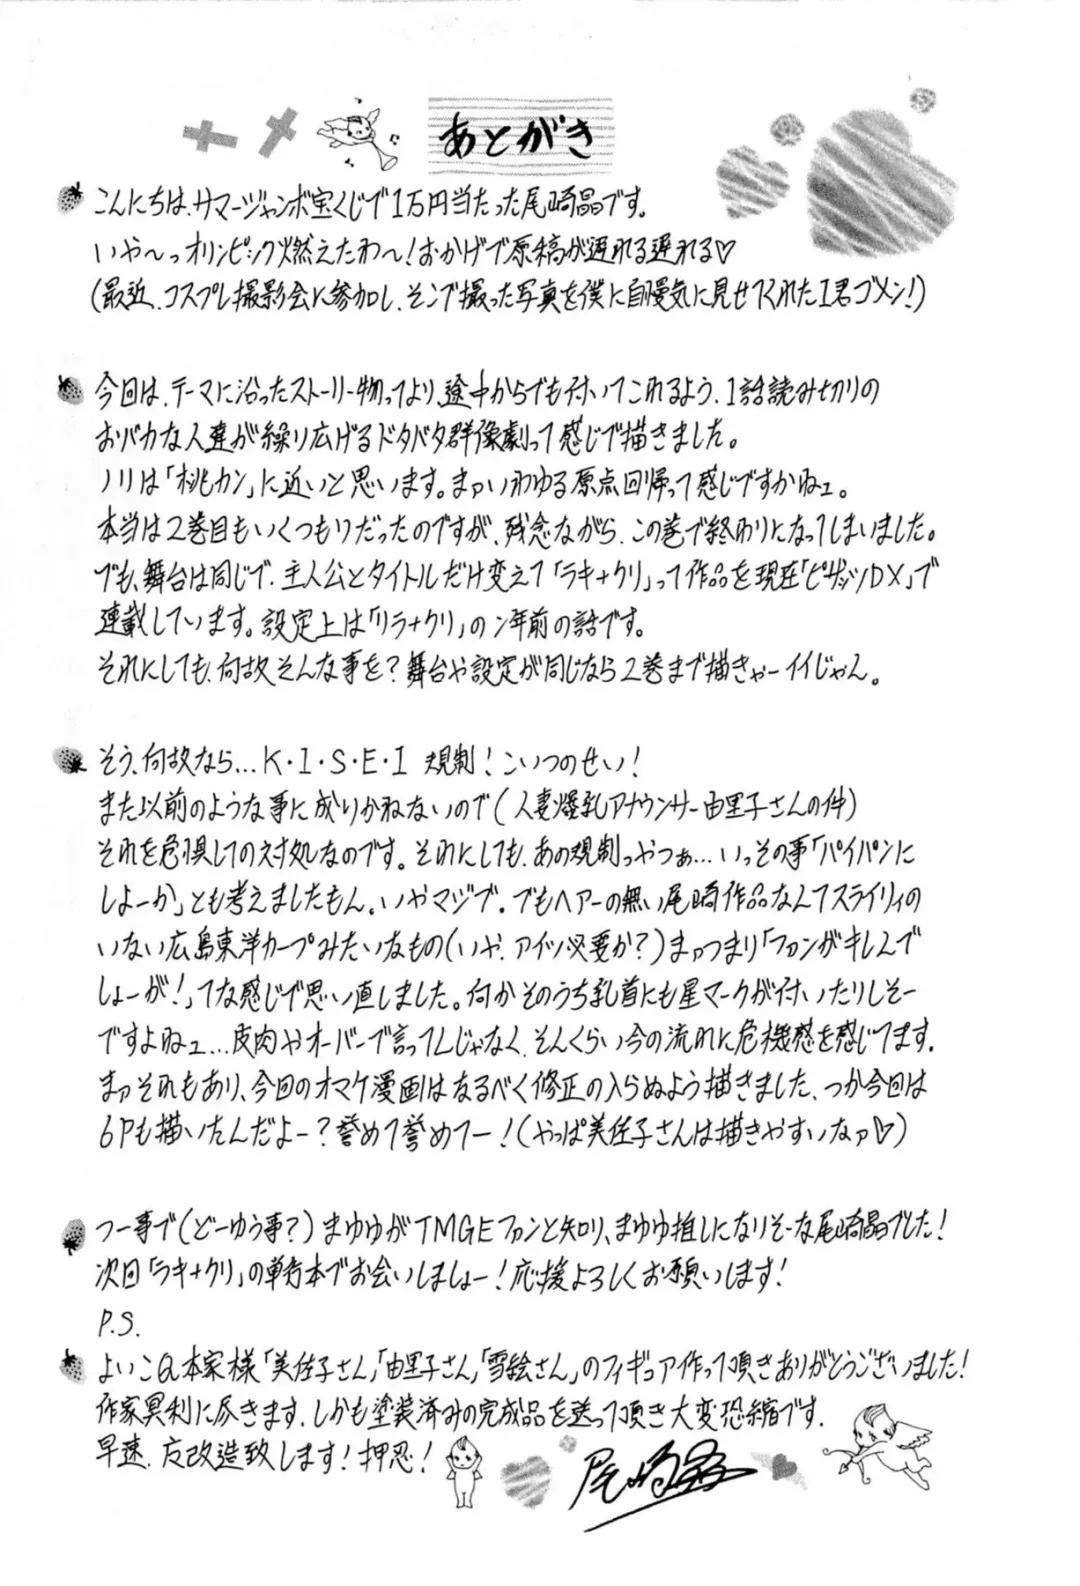 あとがき
こんにちは、サマージャンボ宝くじで1万円当たった尾崎晶です。
いや〜っオリンピック燃えたわ〜!おかげで原稿が遅れる遅れる♡
(最近、コスプレ撮影会に参加し、そこで撮った写真を僕に自慢気に見せてくれたI君ゴメン!)
今回は、テーマに沿ったストーリー物ってより、途中からでも付いてこれるよう、1話読み切りの
おバカな人達が繰り広げるドタバタ群像劇って感じで描きました。
ノリは「桃カン」に近いと思います。まァいわゆる原点回帰って感じですかねェ。
本当は2巻目もいくつもりだったのですが、残念ながら、この巻で終わりになってしまいました。
でも、舞台は同じで、主人公とタイトルだけ変えて「ラキ+クリ」って作品を現在「ピザッツDX」で
連載しています。設定上は「リラ+クリ」の2年前の話です。
それにしても、何故そんな事を?舞台や設定が同じなら2巻まで描きゃーイイじゃん。
そう、何故なら…K・I・S・E・I 規制!こいつのせい!
また以前のような事に成りかねないので(人妻爆乳アナウンサー由里子さんの件)
それを危惧しての対処なのです。それにしても、あの規制っやつぁ…いっその事「パイパンに
しよーか」とも考えましたもん。いやマジで。でもヘアーの無い尾崎作品なんてスライリィの
いない広島東洋カープみたいなもの(いや、アイツ必要か?)まァつまり「ファンがキレんで
しょーが!」てな感じで思い直しました。何かそのうち乳首にも星マークが付いたりしそー
ですよねェ…皮肉やオーバーで言ってんじゃなく、そんくらい今の流れに危機感を感じてます。
まァそれもあり、今回のオマケ漫画はなるべく修正の入らぬよう描きました、つか今回は
6Pも描いたんだよー?誉めて誉めてー!(やっぱ美佐子さんは描きやすいなァ♡)
つー事で(どーゆう事?)まゆゆがTMGEファンと知り、まゆゆ推しになりそーな尾崎晶でした!
次回「ラキ+クリ」の単行本でお会いしましょー!応援よろしくお願いします!
P.S.
よいこQ本家様「美佐子さん」「由里子さん」「雪絵さん」のフィギュア作って頂きありがとうございました!
作家冥利に尽きます、しかも塗装済みの完成品を送って頂き大変恐縮です。
早速、改造致します!押忍!
尾崎晶